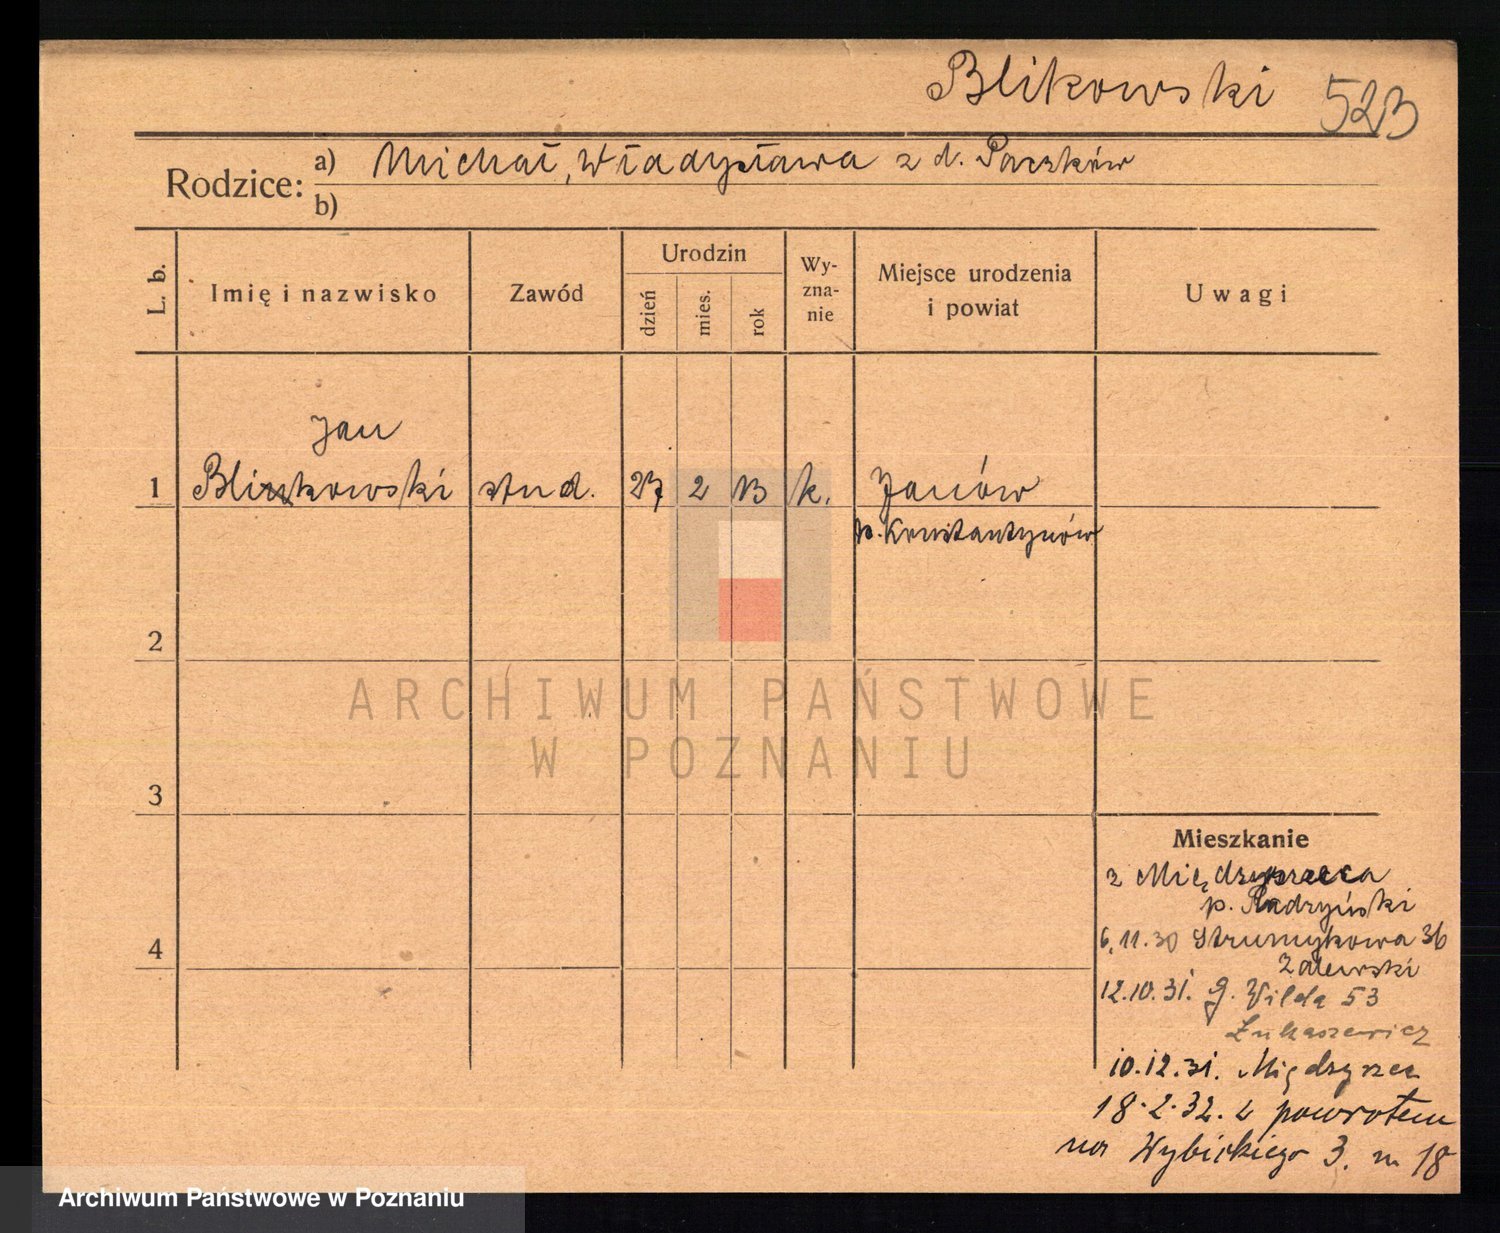 Blikowski 523
Rodzice: a) Michał, Władysława z d. Paczków
b)
L. b. Imię i nazwisko Zawód Urodzin dzień mies. rok Wy-zna-nie Miejsce urodzenia i powiat Uwagi
Jan
1 Blikowski stud. 27 2 13 k. Janów
p. Konstantynów
2
3
4
ARCHIWUM PAŃSTWOWE
W POZNANIU
Mieszkanie
z Międzyrzeca
p. Radzyński
6.11.30 Strumykowa 36
Zalewski
12.10.31. G. Wilda 53
Łukaszewicz
10.12.31. Międzyrzec
18.2.32. z powrotem
na Wybickiego 3. m 18
Archiwum Państwowe w Poznaniu